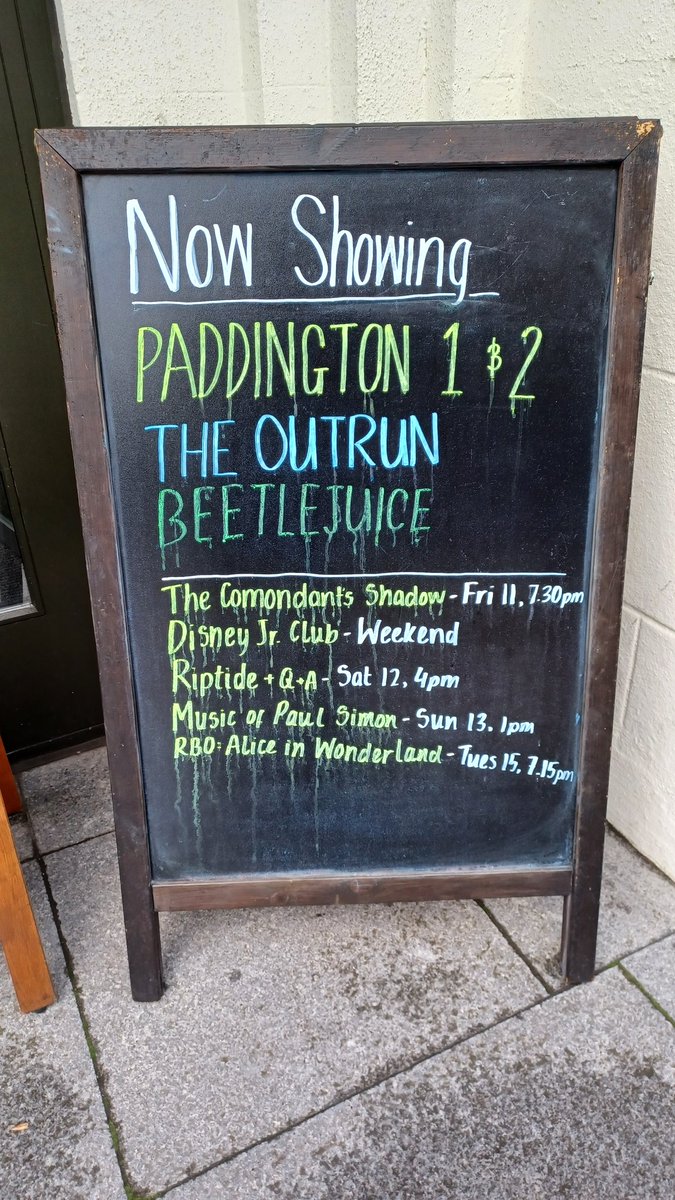 Now Showing
PADDINGTON 1 & 2
THE OUTRUN
BEETLEJUICE
The Comondant's Shadow - Fri 11, 7.30pm
Disney Jr. Club - Weekend
Riptide + Q+A - Sat 12, 4pm
Music of Paul Simon - Sun 13, 1pm
RBO: Alice in Wonderland - Tues 15, 7.15pm